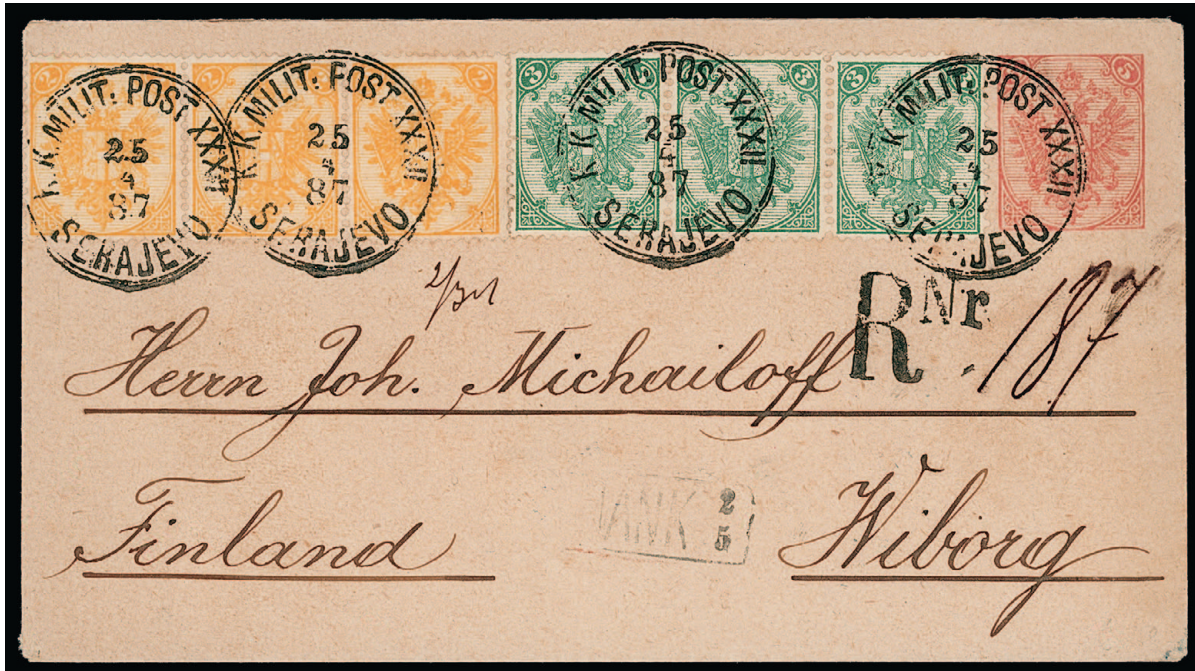 2 2 2 3 3 3 5
K.K. MILIT: POST XXXII
25
4
87
SERAJEVO
K.K. MILIT: POST XXXII
25
4
87
SERAJEVO
K.K. MILIT: POST XXXII
25
4
87
SERAJEVO
K.K. MILIT: POST XXXII
25
4
87
SERAJEVO
R Nr. 187
Herrn Joh. Michailoff
2
5
Finland
Wiborg